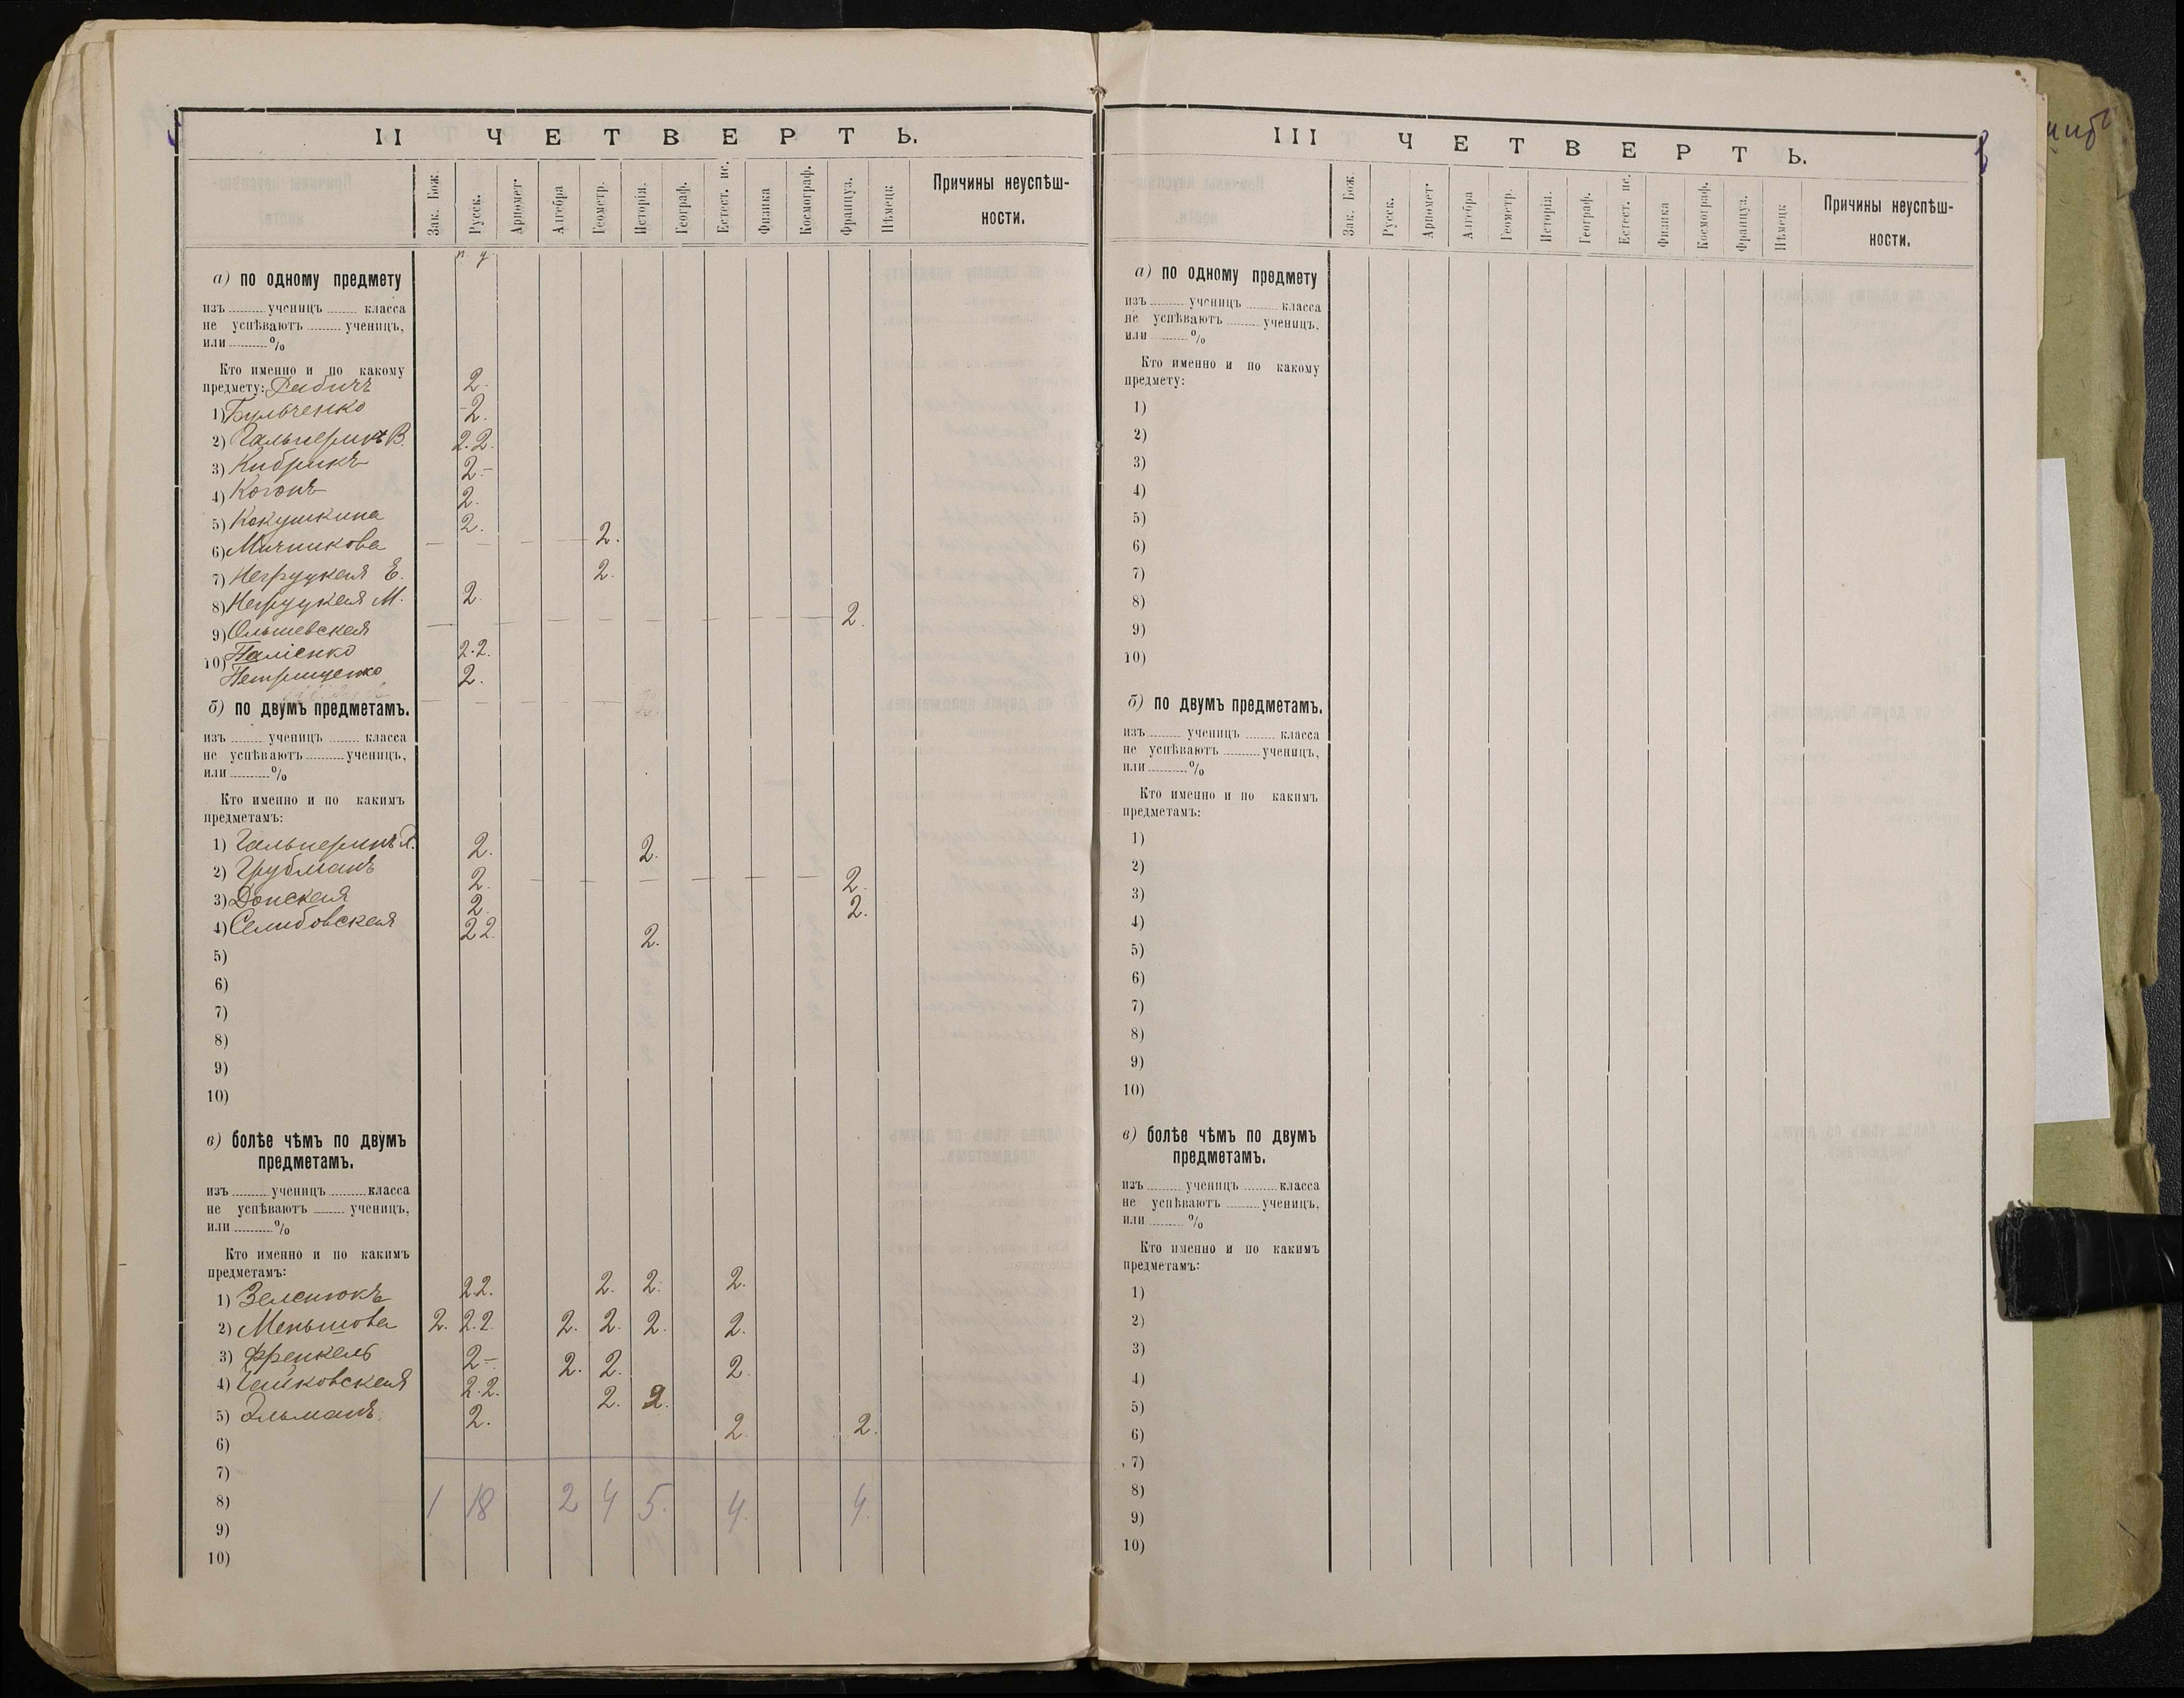 II ЧЕТВЕРТЬ.
Зак. Бож.
Русск.
Ариѳмет.
Алгебра
Геометр.
Исторія.
Географ.
Естест. ис.
Физика
Космограф.
Француз.
Нѣмецк
Причины неуспѣш-
ности.
п. у.
а) по одному предмету
изъ ученицъ класса
не успѣваютъ ученицъ,
или %
Кто именно и по какому
предмету: Бабичъ 2.
1) Бульченко 2.
2) Гальперинъ В. 2.2.
3) Кибрикъ 2-
4) Коганъ 2.
5) Кокушкина 2.
6) Мичникова 2.
7) Негруцкая Е. 2.
8) Негруцкая М. 2.
9) Ольшевская 2.
10) Паліенко 2.2.
Петрищенко 2.
б) по двумъ предметамъ.
изъ ученицъ класса
не успѣваютъ ученицъ,
или %
Кто именно и по какимъ
предметамъ:
1) Гальперинъ 2. 2.
2) Грубманъ 2. 2.
3) Донская 2. 2.
4) Селибовская 22. 2.
5)
6)
7)
8)
9)
10)
в) болѣе чѣмъ по двумъ
предметамъ.
изъ ученицъ класса
не успѣваютъ ученицъ,
или %
Кто именно и по какимъ
предметамъ:
1) Зеленюкъ 22. 2. 2. 2.
2) Меньшова 2. 2.2. 2. 2. 2. 2.
3) Френкель 2- 2. 2. 2.
4) Чайковская 2.2. 2. 2.
5) Эльманъ 2. 2. 2.
6)
7)
8) 1 18 2 4 5. 4. 4.
9)
10)
III ЧЕТВЕРТЬ.
Зак. Бож.
Русск.
Ариѳмет.
Алгебра
Геометр.
Исторія.
Географ.
Естест. ис.
Физика
Космограф.
Француз.
Нѣмецк
Причины неуспѣш-
ности.
а) по одному предмету
изъ ученицъ класса
не успѣваютъ ученицъ,
или %
Кто именно и по какому
предмету:
1)
2)
3)
4)
5)
6)
7)
8)
9)
10)
б) по двумъ предметамъ.
изъ ученицъ класса
не успѣваютъ ученицъ,
или %
Кто именно и по какимъ
предметамъ:
1)
2)
3)
4)
5)
6)
7)
8)
9)
10)
в) болѣе чѣмъ по двумъ
предметамъ.
изъ ученицъ класса
не успѣваютъ ученицъ,
или %
Кто именно и по какимъ
предметамъ:
1)
2)
3)
4)
5)
6)
7)
8)
9)
10)